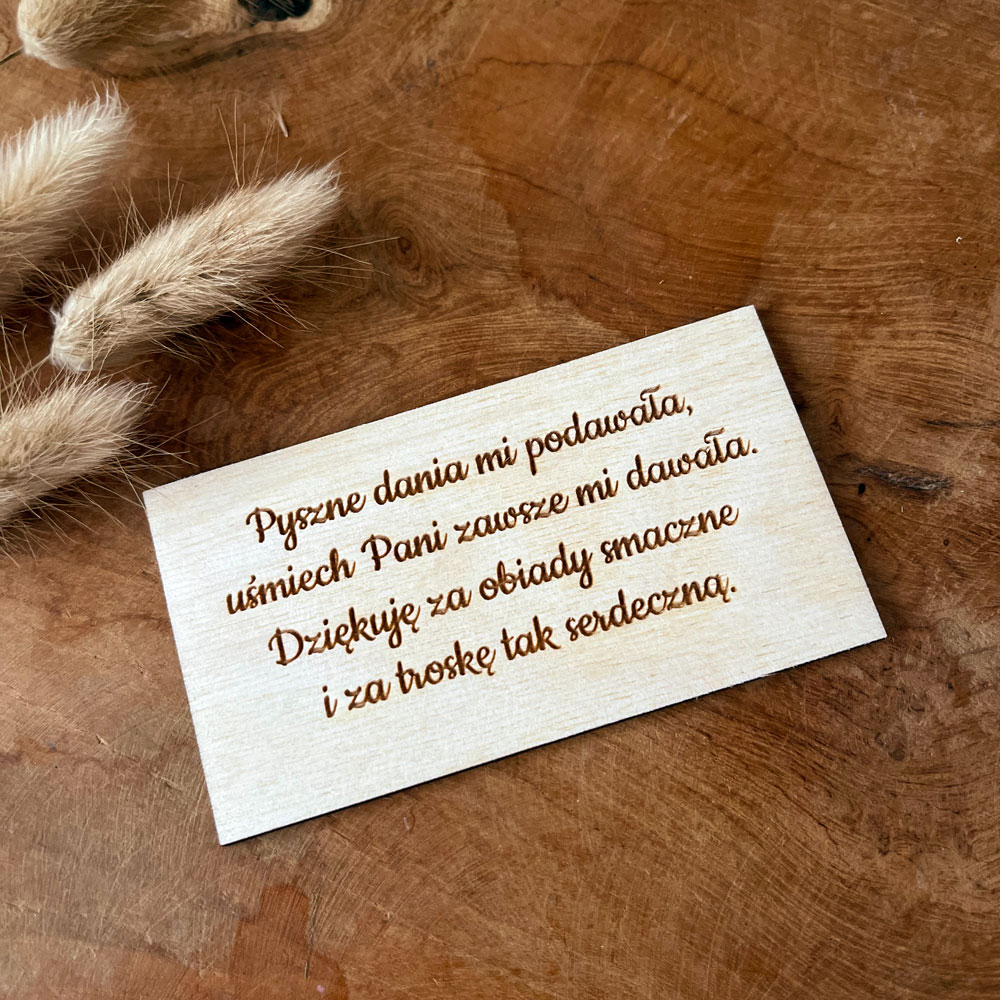 Pyszne dania mi podawała,
uśmiech Pani zawsze mi dawała.
Dziękuję za obiady smaczne
i za troskę tak serdeczną.